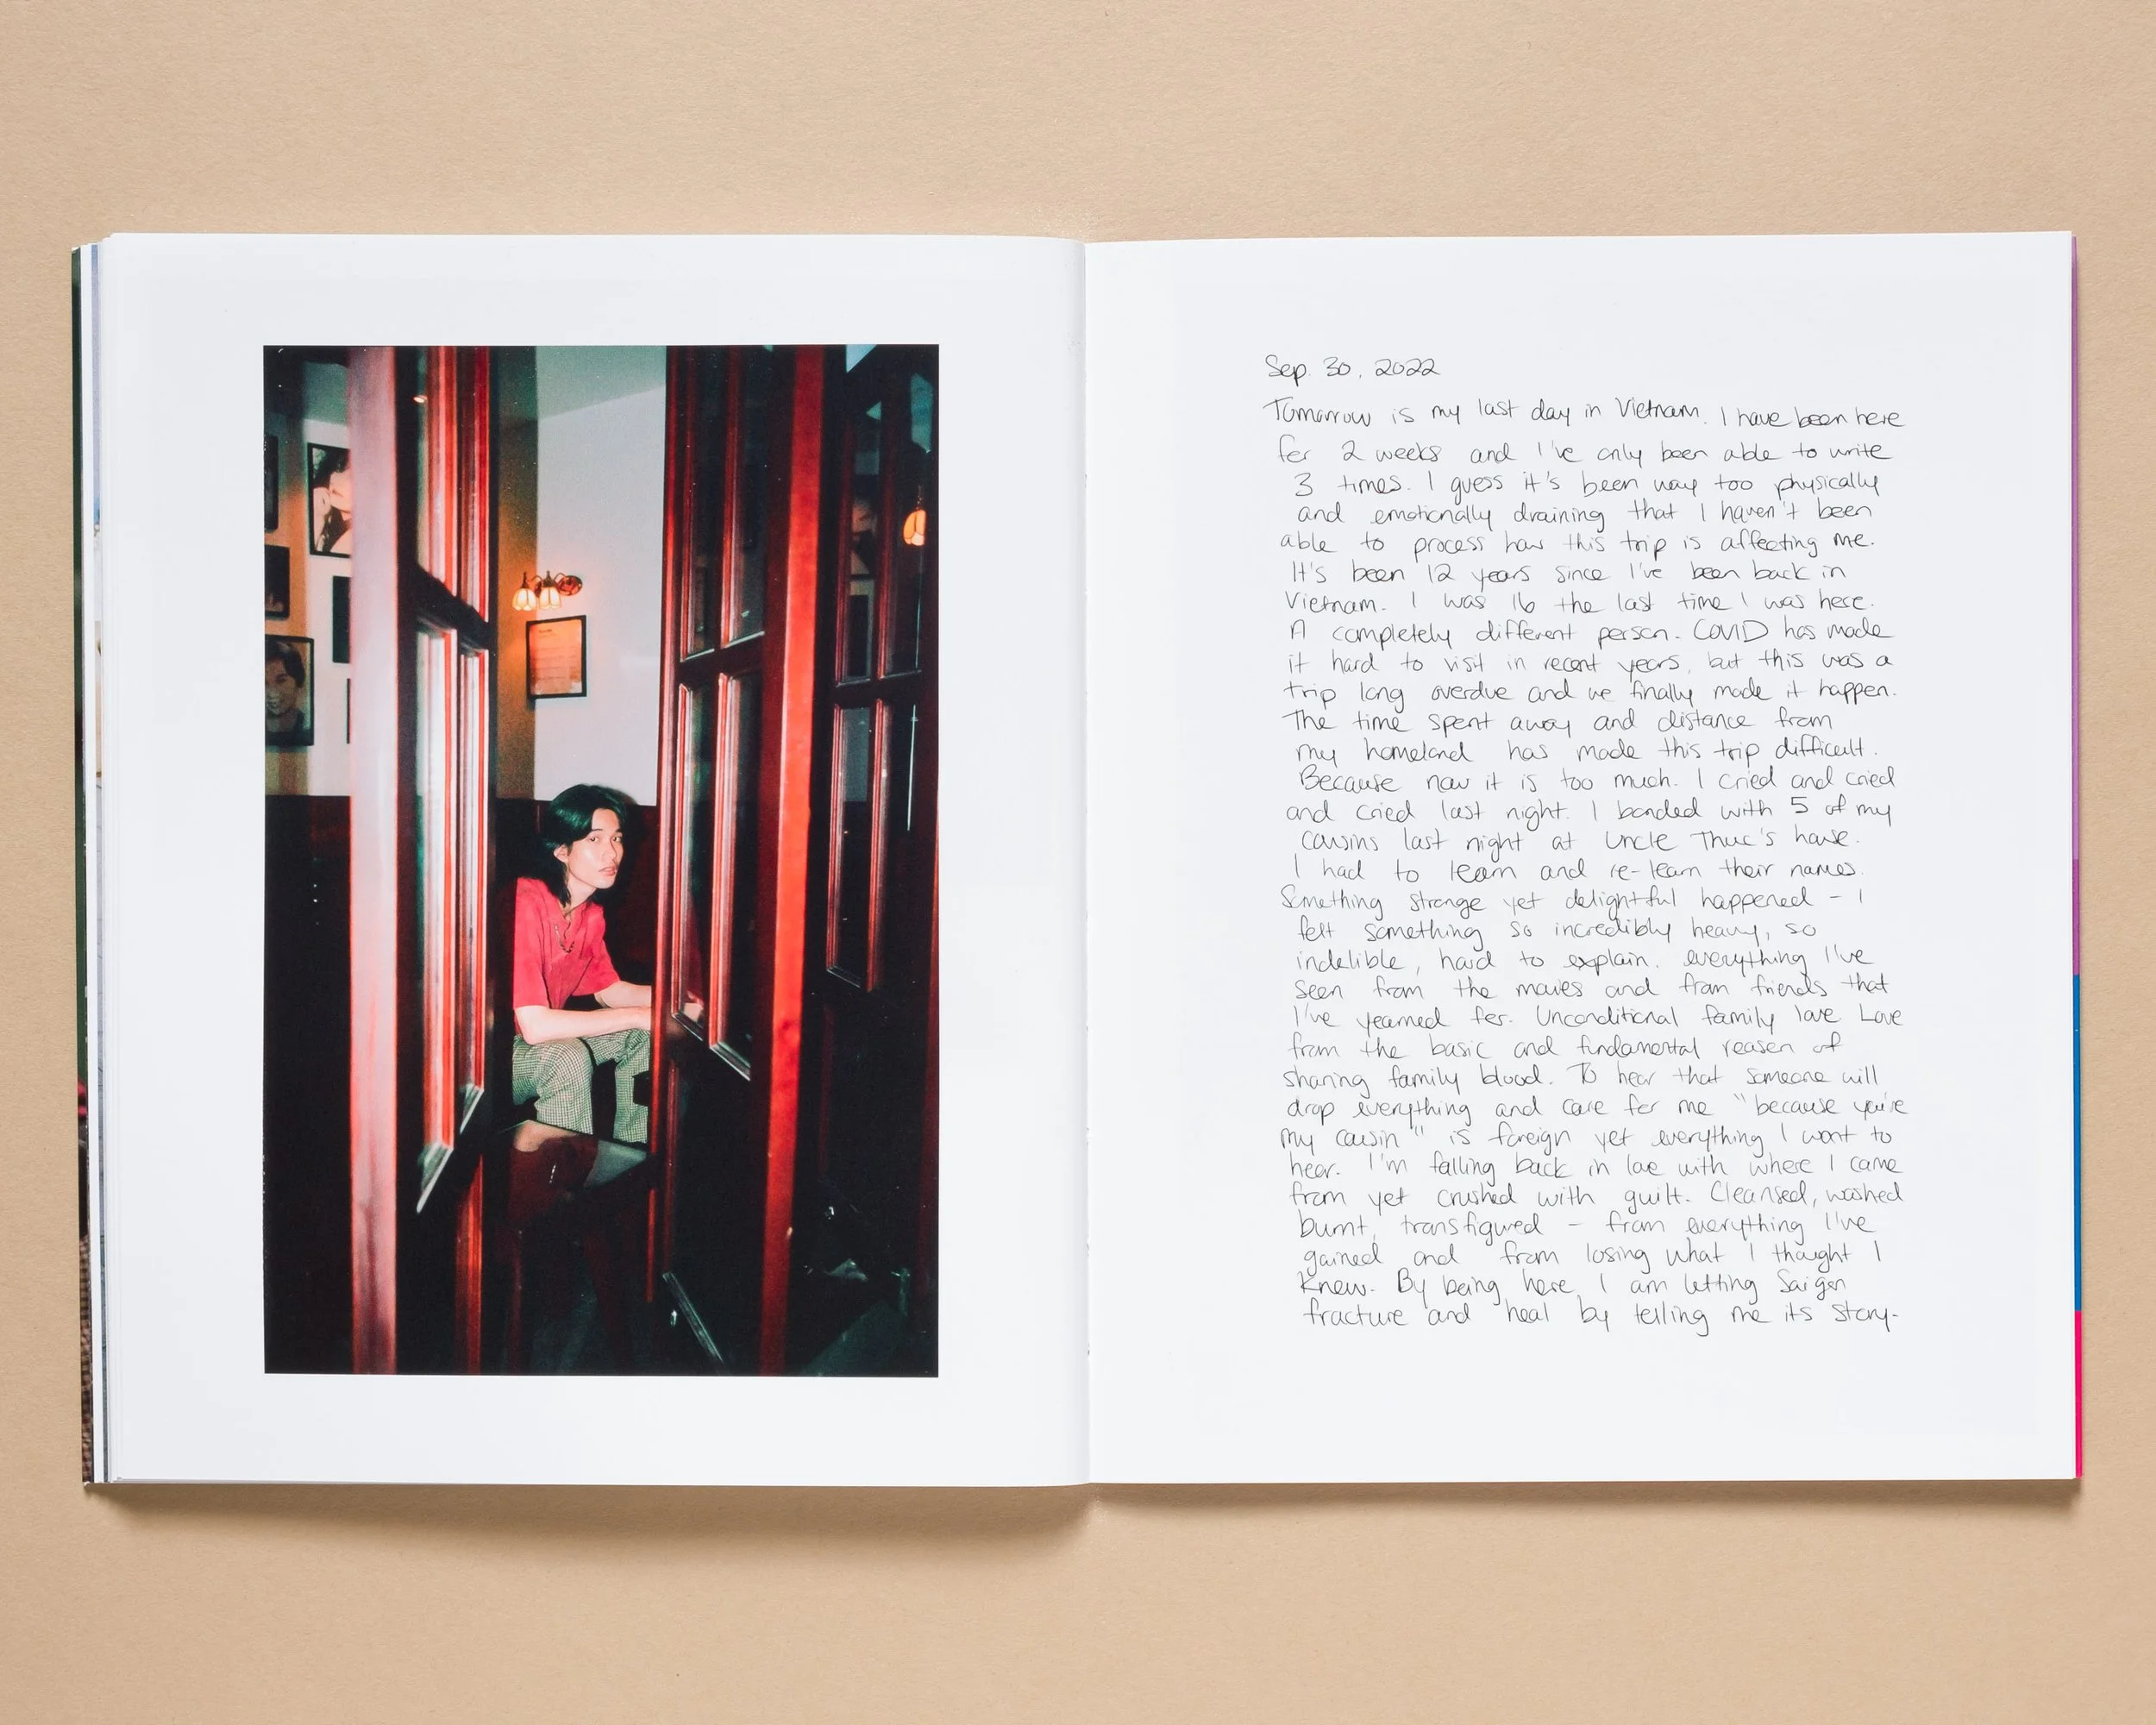 Sep. 30, 2022
Tomorrow is my last day in Vietnam. I have been here
for 2 weeks and I've only been able to write
3 times. I guess it's been way too physically
and emotionally draining that I haven't been
able to process how this trip is affecting me.
It's been 12 years since I've been back in
Vietnam. I was 16 the last time I was here.
A completely different person. COVID has made
it hard to visit in recent years, but this was a
trip long overdue and we finally made it happen.
The time spent away and distance from
my homeland has made this trip difficult.
Because now it is too much. I cried and cried
and cried last night. I bonded with 5 of my
cousins last night at Uncle Thuc's house.
I had to learn and re-learn their names.
Something strange yet delightful happened - I
felt something so incredibly heavy, so
indelible, hard to explain. everything I've
seen from the movies and from friends that
I've yearned for. Unconditional family love Love
from the basic and fundamental reason of
sharing family blood. To hear that someone will
drop everything and care for me "because you're
my cousin" is foreign yet everything I want to
hear. I'm falling back in love with where I came
from yet crushed with guilt. Cleansed, washed
burnt, transfigured - from everything I've
gained and from losing what I thought I
knew. By being here, I am letting Saigon
fracture and heal by telling me its story-